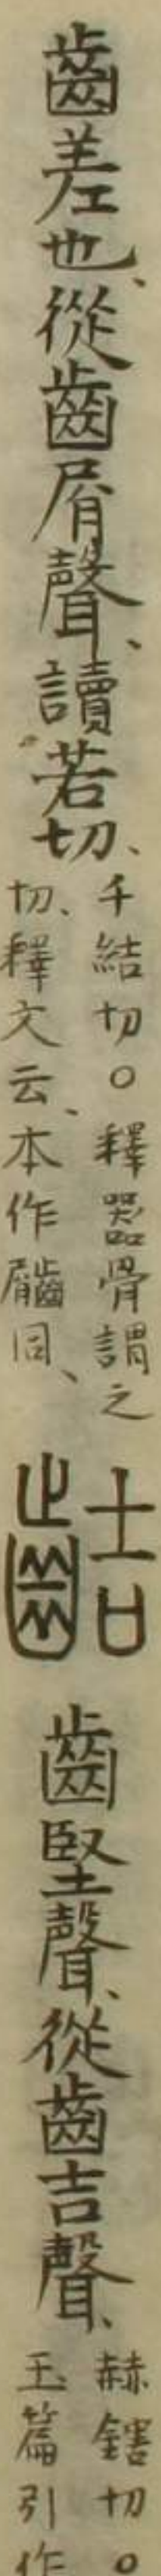 齒差也、從齒屑聲、讀若切、
千結切。釋器骨謂之
切、釋文云、本作𪘮同、
齰
齒堅聲、從齒吉聲、
赫鎋切。
玉篇引作